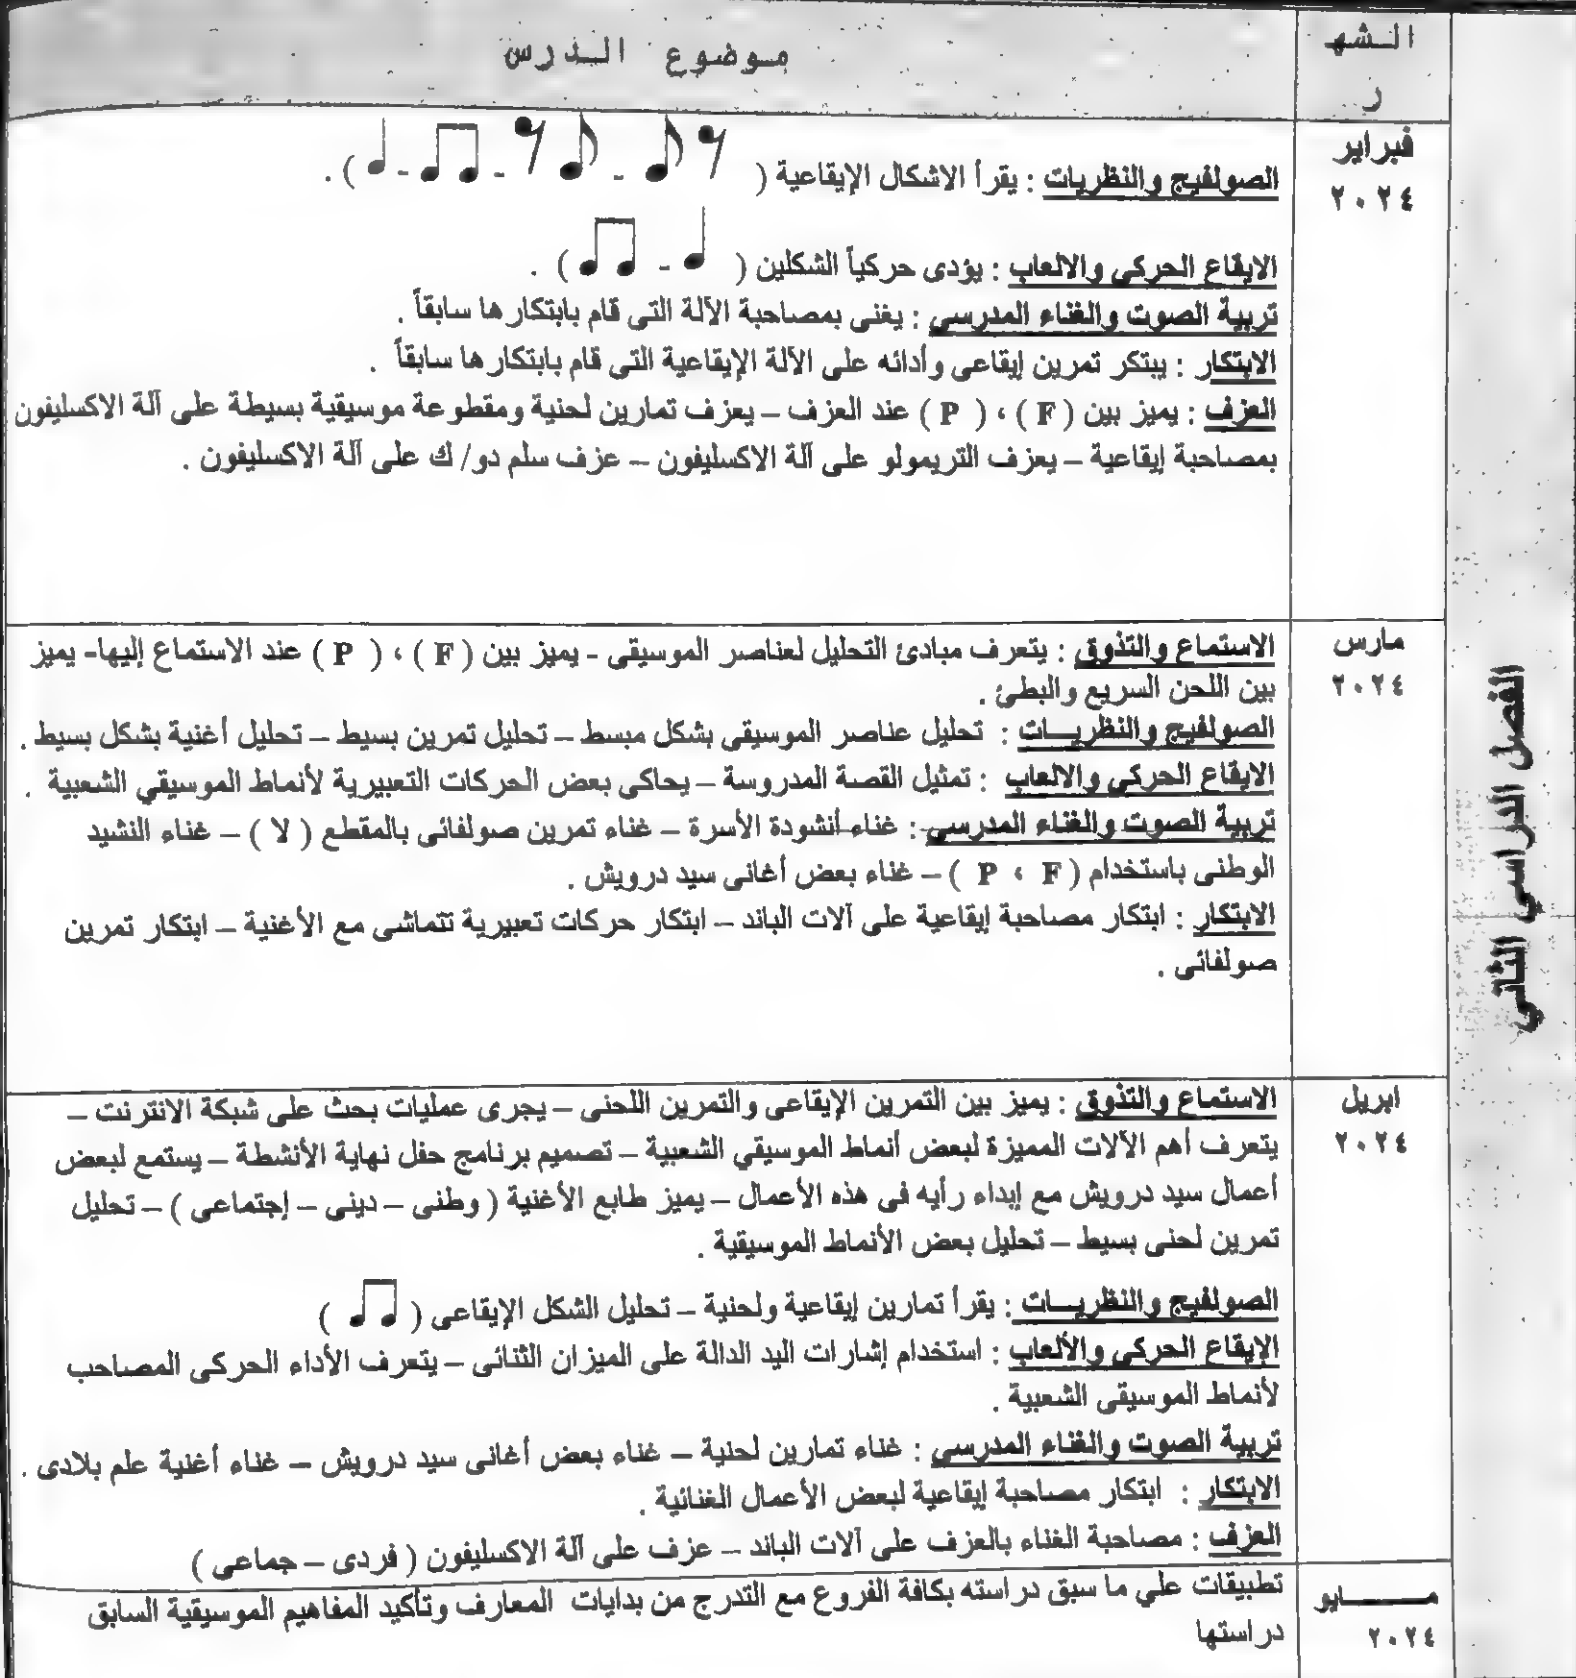 الفصل الدراسي الثاني
الـشهـ
ر
مـوضوع الـدرس
فبراير
٢٠٢٤
الصولفيج والنظريات : يقرأ الاشكال الإيقاعية ( 𝄾 ♪ - ♪ 𝄾 - ♫ - ♩ ) .
الايقاع الحركى والالعاب : يؤدى حركياً الشكلين ( ♩ - ♫ ) .
تربية الصوت والغناء المدرسي : يغنى بمصاحبة الآلة التى قام بابتكارها سابقاً .
الابتكار : يبتكر تمرين إيقاعى وأدائه على الآلة الإيقاعية التى قام بابتكارها سابقاً .
العزف : يميز بين ( F ) ، ( P ) عند العزف – يعزف تمارين لحنية ومقطوعة موسيقية بسيطة على آلة الاكسليفون
بمصاحبة إيقاعية – يعزف التريمولو على آلة الاكسليفون – عزف سلم دو/ ك على آلة الاكسليفون .
مارس
٢٠٢٤
الاستماع والتذوق : يتعرف مبادئ التحليل لعناصر الموسيقى - يميز بين ( F ) ، ( P ) عند الاستماع إليها- يميز
بين اللحن السريع والبطئ .
الصولفيج والنظريـــات : تحليل عناصر الموسيقى بشكل مبسط – تحليل تمرين بسيط – تحليل أغنية بشكل بسيط .
الايقاع الحركى والالعاب : تمثيل القصة المدروسة – يحاكى بعض الحركات التعبيرية لأنماط الموسيقي الشعبية .
تربية الصوت والغناء المدرسي : غناء أنشودة الأسرة – غناء تمرين صولفائى بالمقطع ( لا ) – غناء النشيد
الوطنى باستخدام ( P ، F ) – غناء بعض أغانى سيد درويش .
الابتكار : ابتكار مصاحبة إيقاعية على آلات الباند – ابتكار حركات تعبيرية تتماشى مع الأغنية – ابتكار تمرين
صولفائى .
ابريل
٢٠٢٤
الاستماع والتذوق : يميز بين التمرين الإيقاعى والتمرين اللحنى – يجرى عمليات بحث على شبكة الانترنت –
يتعرف أهم الآلات المميزة لبعض أنماط الموسيقي الشعبية – تصميم برنامج حفل نهاية الأنشطة – يستمع لبعض
أعمال سيد درويش مع إبداء رأيه فى هذه الأعمال – يميز طابع الأغنية ( وطنى – دينى – إجتماعى ) – تحليل
تمرين لحنى بسيط – تحليل بعض الأنماط الموسيقية .
الصولفيج والنظريـــات : يقرأ تمارين إيقاعية ولحنية – تحليل الشكل الإيقاعى ( ♫ )
الإيقاع الحركى والألعاب : استخدام إشارات اليد الدالة على الميزان الثنائى – يتعرف الأداء الحركى المصاحب
لأنماط الموسيقى الشعبية .
تربية الصوت والغناء المدرسي : غناء تمارين لحنية – غناء بعض أغانى سيد درويش – غناء أغنية علم بلادى .
الابتكار : ابتكار مصاحبة إيقاعية لبعض الأعمال الغنائية .
العزف : مصاحبة الغناء بالعزف على آلات الباند – عزف على آلة الاكسليفون ( فردى – جماعى )
مـــــــايو
٢٠٢٤
تطبيقات علي ما سبق دراسته بكافة الفروع مع التدرج من بدايات المعارف وتأكيد المفاهيم الموسيقية السابق
دراستها